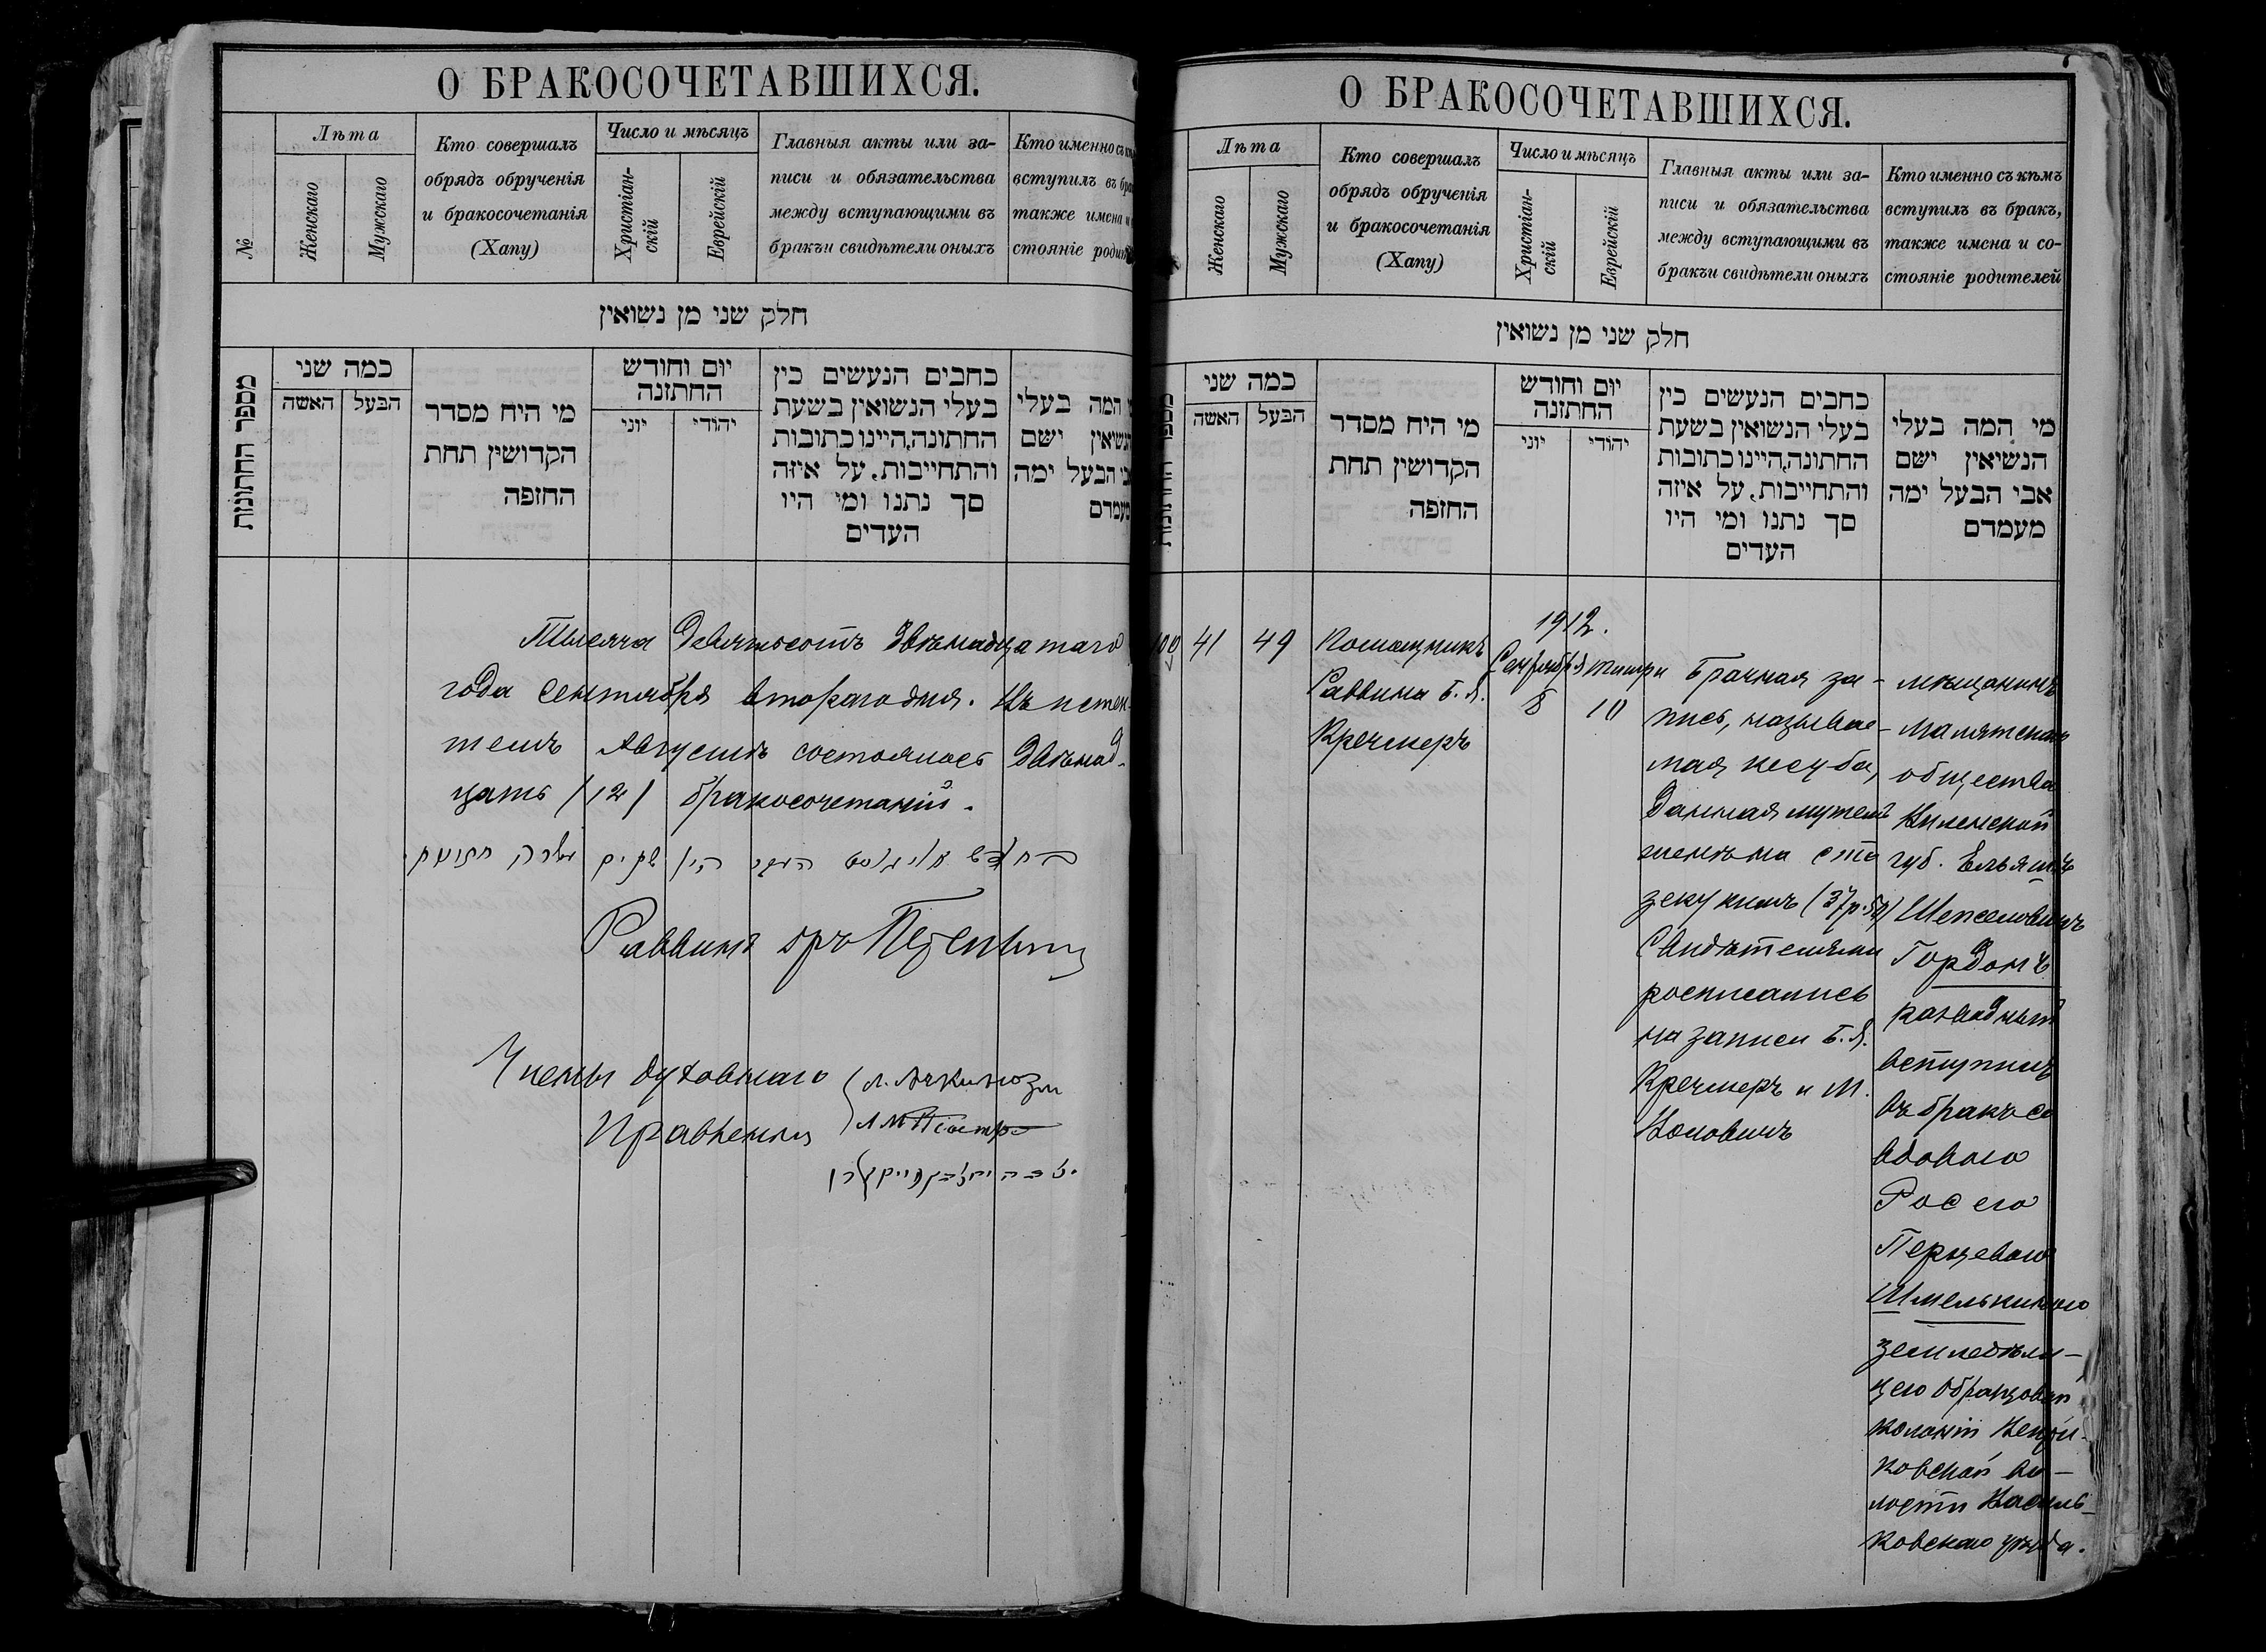 О БРАКОСОЧЕТАВШИХСЯ.
№
Лѣта
Женскаго
Мужскаго
Кто совершалъ
обрядъ обрученія
и бракосочетанія
(Хапу)
Число и мѣсяцъ
Христіан-
скій
Еврейскій
Главныя акты или за-
писи и обязательства
между вступающими въ
бракъи свидѣтели оныхъ
Кто именно съ
вступилъ въ
также имена и
стояніе
חלק שני מן נשואין
מספר החתונות
כמה שני
האשה
הבעל
מי היח מסדר
הקדושין תחת
החזפה
יום וחודש
החתזנה
יוני
יהודי
כחבים הנעשים כין
בעלי הנשואין בשעת
החתונה,היינו כתובות
והתחייבות, על איזה
סך נתנו ומי היו
העדים
המה בעלי
ישם
הבעל ימה
Тысяча девятьсотъ двѣнадцатаго
года Сентября второго дня. Въ истек-
шемъ Августѣ состоялось двѣнад-
цать (12) бракосочетаній.
Раввинъ
Члены духовнаго
Правленія
О БРАКОСОЧЕТАВШИХСЯ.
Лѣта
Женскаго
Мужскаго
Кто совершалъ
обрядъ обрученія
и бракосочетанія
(Хапу)
Число и мѣсяцъ
Христіан-
скій
Еврейскій
Главныя акты или за-
писи и обязательства
между вступающими въ
бракъи свидѣтели оныхъ
Кто именно съ кѣмъ
вступилъ въ бракъ,
также имена и со-
стояніе родителей
חלק שני מן נשואין
כמה שני
האשה
הבעל
מי היח מסדר
הקדושין תחת
החזפה
יום וחודש
החתזנה
יוני
יהודי
כחבים הנעשים כין
בעלי הנשואין בשעת
החתונה,היינו כתובות
והתחייבות, על איזה
סך נתנו ומי היו
העדים
מי המה בעלי
הנשיאין ישם
אבי הבעל ימה
מעמדם
100
41
49
Помощникъ
Раввина Б. Я.
Кречмеръ
1912.
Сентября
8
Тишри
10
Брачная за-
пись, называе-
мая кесуба,
данная мужемъ
женѣ на сто
зекукимъ (37р.50)
Свидѣтелями
росписались
на записи Б. Я.
Кречмеръ и М.
мѣщанинъ
Малятскаго
общества
Виленской
губ. Ельяшъ
Шепселовичъ
Гордонъ
разводный
вступилъ
въ бракъ со
вдовою
Росею
Перцевою
Шмелькиною
земледѣли-
цею Образцовой
колоніи
ковской во-
лости Василь-
ковскаго уѣзда.